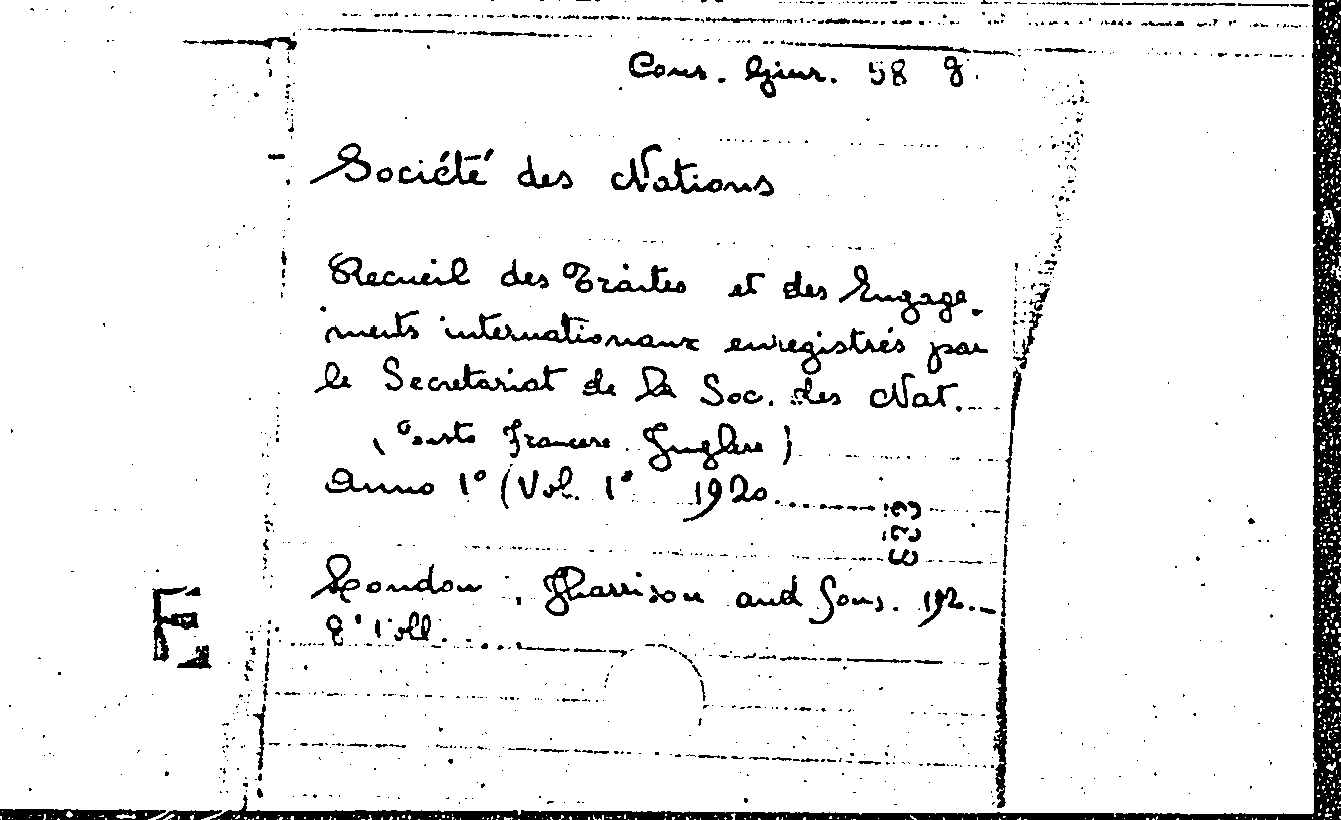 Cons. Giur. 58 g.
Société des Nations
Recueil des Traites et des Engage-
ments internationaux enregistrés par
le Secretariat de la Soc. des Nat.
(Testo Francese Inglese)
Anno 1° (Vol. 1° 1920
London, Harrison and Sons. 192
8°